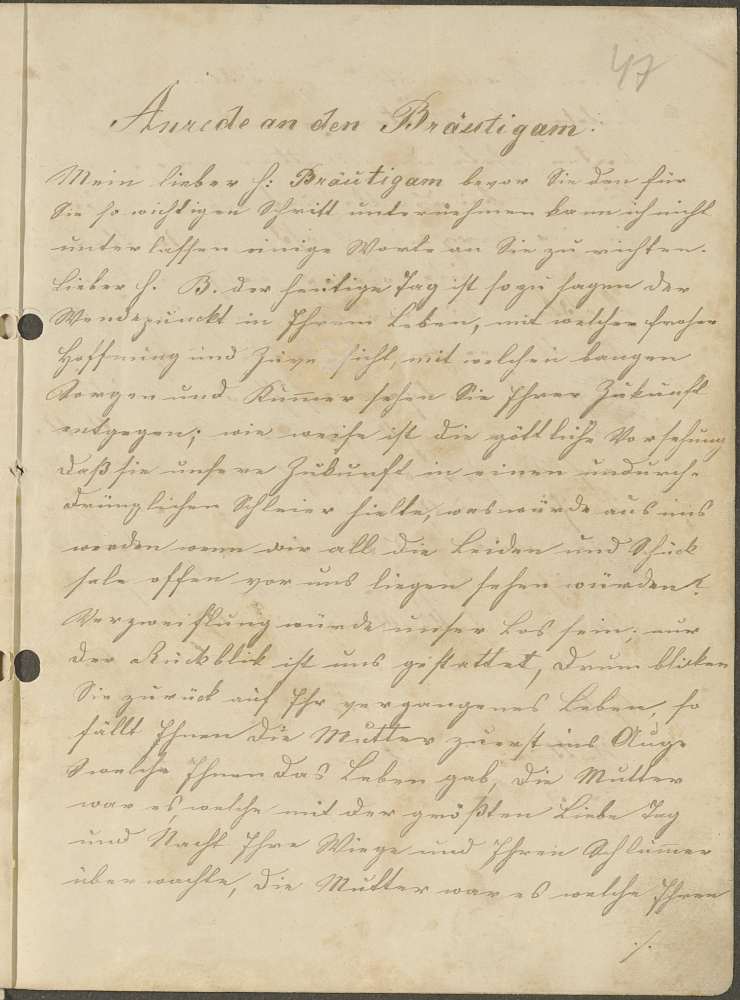 47
Anrede an den Bräutigam.
Mein lieber H: Bräutigam bevor Sie den für
Sie so wichtigen Schritt unternehmen kann ich nicht
unterlassen einige Worte an Sie zu richten.
Lieber H. B. der heutige Tag ist sozu sagen der
Wendepunckt in Ihrem Leben, mit welcher froher
Hoffnung und Zuve sicht, mit welchen bangen
Sorgen und Kummer sehen Sie Ihrer Zukunft
entgegen; wie weise ist die göttliche Vorsehung
daß sie unsere Zukunft in einen undurch-
dringlichen Schleier hielte, was würde aus uns
werden wenn wir all die Leiden und Schick
sale offen vor uns liegen sehen würden?
Verzweiflung würde unser Los sein; nur
der Rückblik ist uns gestattet, drum blicken
Sie zurück auf Ihr vergangenes Leben, so
fällt Ihnen die Mutter zuerst ins Auge
welche Ihnen das Leben gab, die Mutter
war es, welche mit der größten Liebe Tag
und Nacht Ihre Wiege und Ihren Schlummer
überwachte, die Mutter war es welche Ihren
./.